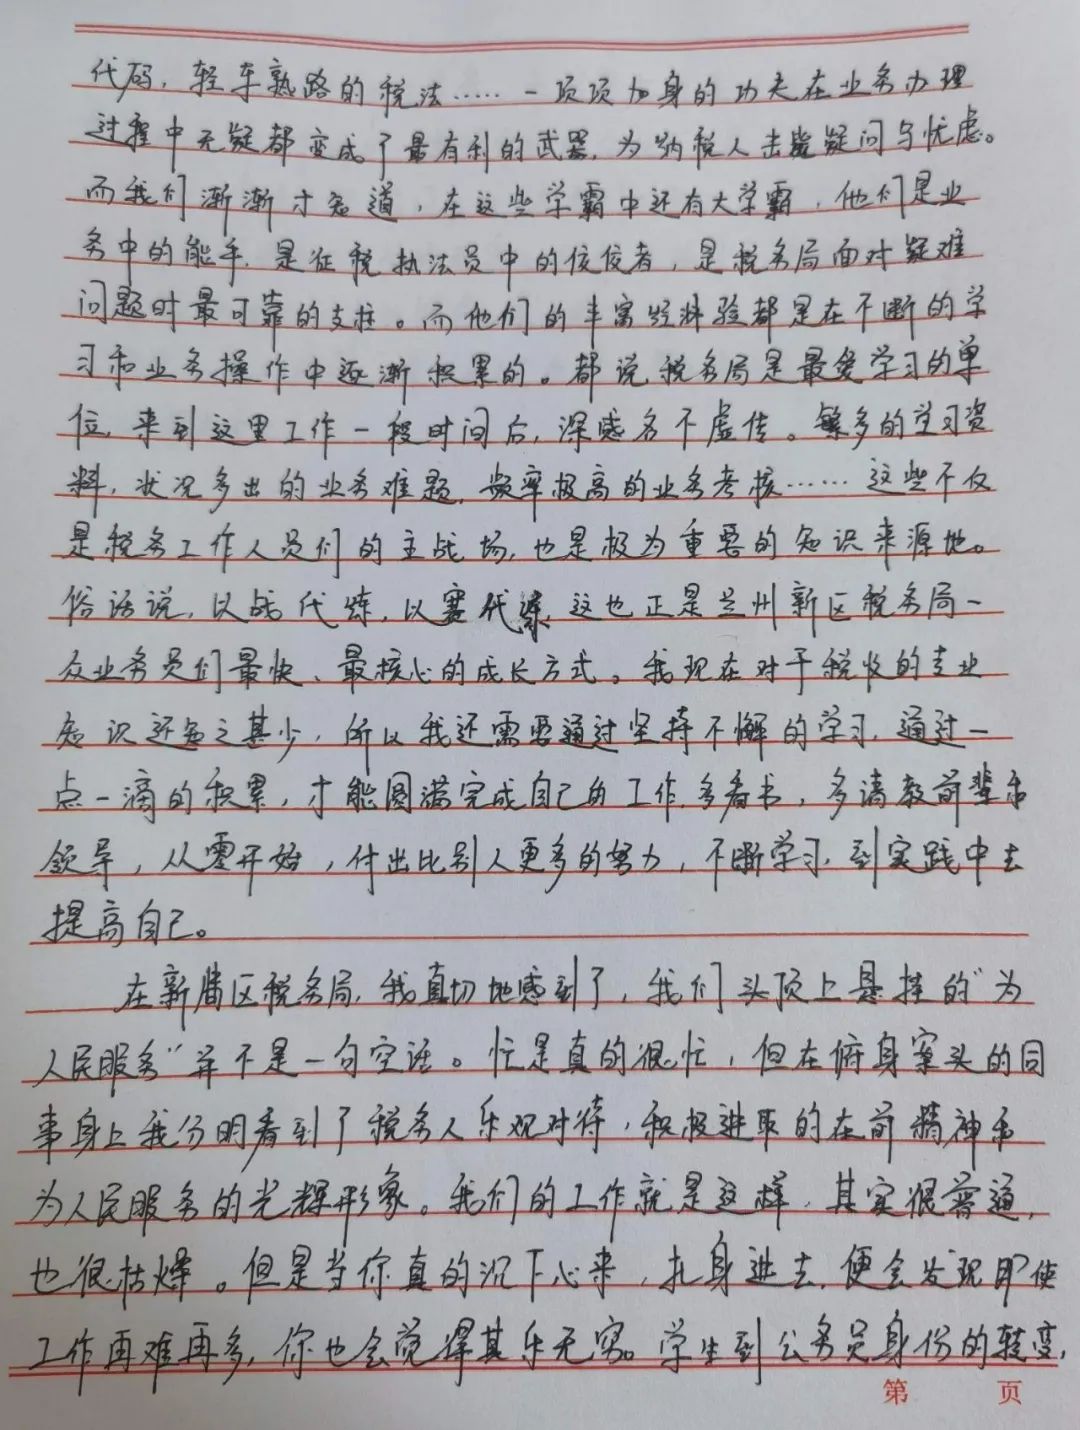 代码，轻车熟路的税法……一项项加身的功夫在业务办理
过程中无疑都变成了最有利的武器，为纳税人击毙疑问与忧虑。
而我们渐渐才知道，在这些学霸中还有大学霸，他们是业
务中的能手，是征税执法员中的佼佼者，是税务局面对疑难
问题时最可靠的支柱。而他们的丰富经验都是在不断的学
习和业务操作中逐渐积累的。都说税务局是最爱学习的单
位，来到这里工作一段时间后，深感名不虚传。繁多的学习资
料，状况多出的业务难题，频率极高的业务考核……这些不仅
是税务工作人员们的主战场，也是极为重要的知识来源地。
俗话说，以战代练，以赛代练，这也正是兰州新区税务局一
众业务员们最快、最核心的成长方式。我现在对于税收的专业
知识还知之甚少，所以我还需要通过坚持不懈的学习，通过一
点一滴的积累，才能圆满完成自己的工作，多看书，多请教前辈和
领导，从零开始，付出比别人更多的努力，不断学习，到实践中去
提高自己。
在新区税务局，我真切地感到了，我们头顶上悬挂的“为
人民服务”并不是一句空话。忙是真的很忙，但在俯身案头的同
事身上我分明看到了税务人乐观对待，积极进取的在前精神和
为人民服务的光辉形象。我们的工作就是这样，其实很普通，
也很枯燥。但是当你真的沉下心来，扎身进去，便会发现即使
工作再难再多，你也会觉得其乐无穷。学生到公务员身份的转变，
第 页